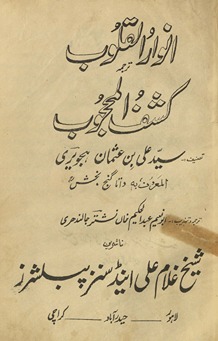 انوار القلوب
ترجمہ
کشف المحجوب
تصنیف... سید علی بن عثمان ہجویری
المعروف بہ داتا گنج بخش
ترجمہ و تہذیب... ابو نعیم عبدالحکیم خاں نشتر جالندھری
ناشرین
شیخ غلام علی اینڈ سنز پبلشرز
لاہور حیدرآباد کراچی